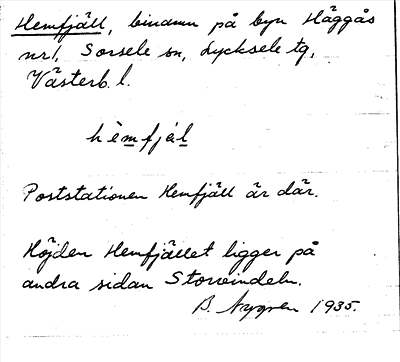 Hemfjäll, binamn på byn Häggås
nr 1, Sorsele sn, Lycksele tg,
Västerb. l.
hèmfjäl
Poststationen Hemfjäll är där.
Höjden Hemfjället ligger på
andra sidan Storvindeln.
B. Nygren 1935.